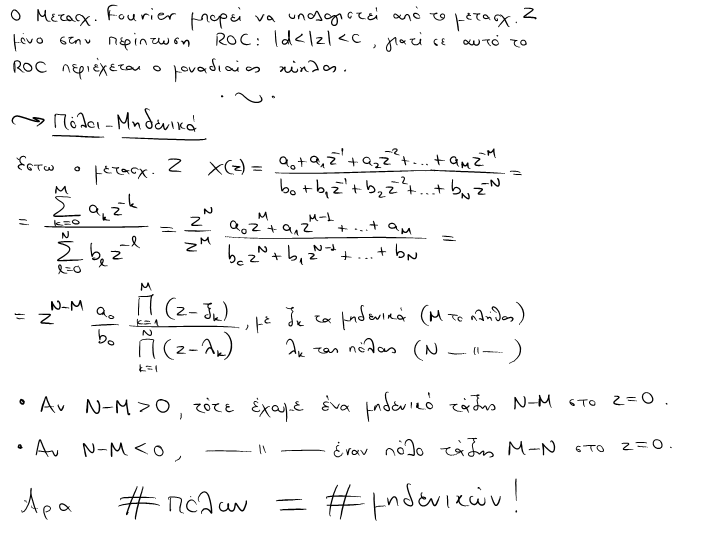 Ο Μετασχ. Fourier μπορεί να υπολογιστεί από το μετασχ. Z
μόνο στην περίπτωση ROC: |d<|z|<c, γιατί σε αυτό το
ROC περιέχεται ο μοναδιαίος κύκλος.
Πόλοι-Μηδενικά
Έστω ο μετασχ. Z X(z) = (a₀+a₁z⁻¹+a₂z⁻²+...+a_M z^-M) / (b₀+b₁z⁻¹+b₂z⁻²+...+b_N z^-N) =
= (∑_{k=0}^{M} a_k z^-k) / (∑_{l=0}^{N} b_l z^-l) = (z^N / z^M) (a₀z^M+a₁z^{M-1}+...+a_M) / (b₀z^N+b₁z^{N-1}+...+b_N) =
= z^{N-M} (a₀/b₀) (∏_{k=1}^{M} (z-ζ_k)) / (∏_{k=1}^{N} (z-λ_k)), με ζ_k τα μηδενικά (M το πλήθος)
λ_k τους πόλους (N —〃—)
• Αν N-M>0, τότε έχουμε ένα μηδενικό τάξης N-M στο z=0.
• Αν N-M<0, —〃— έναν πόλο τάξης M-N στο z=0.
Άρα # πόλων = # μηδενικών!